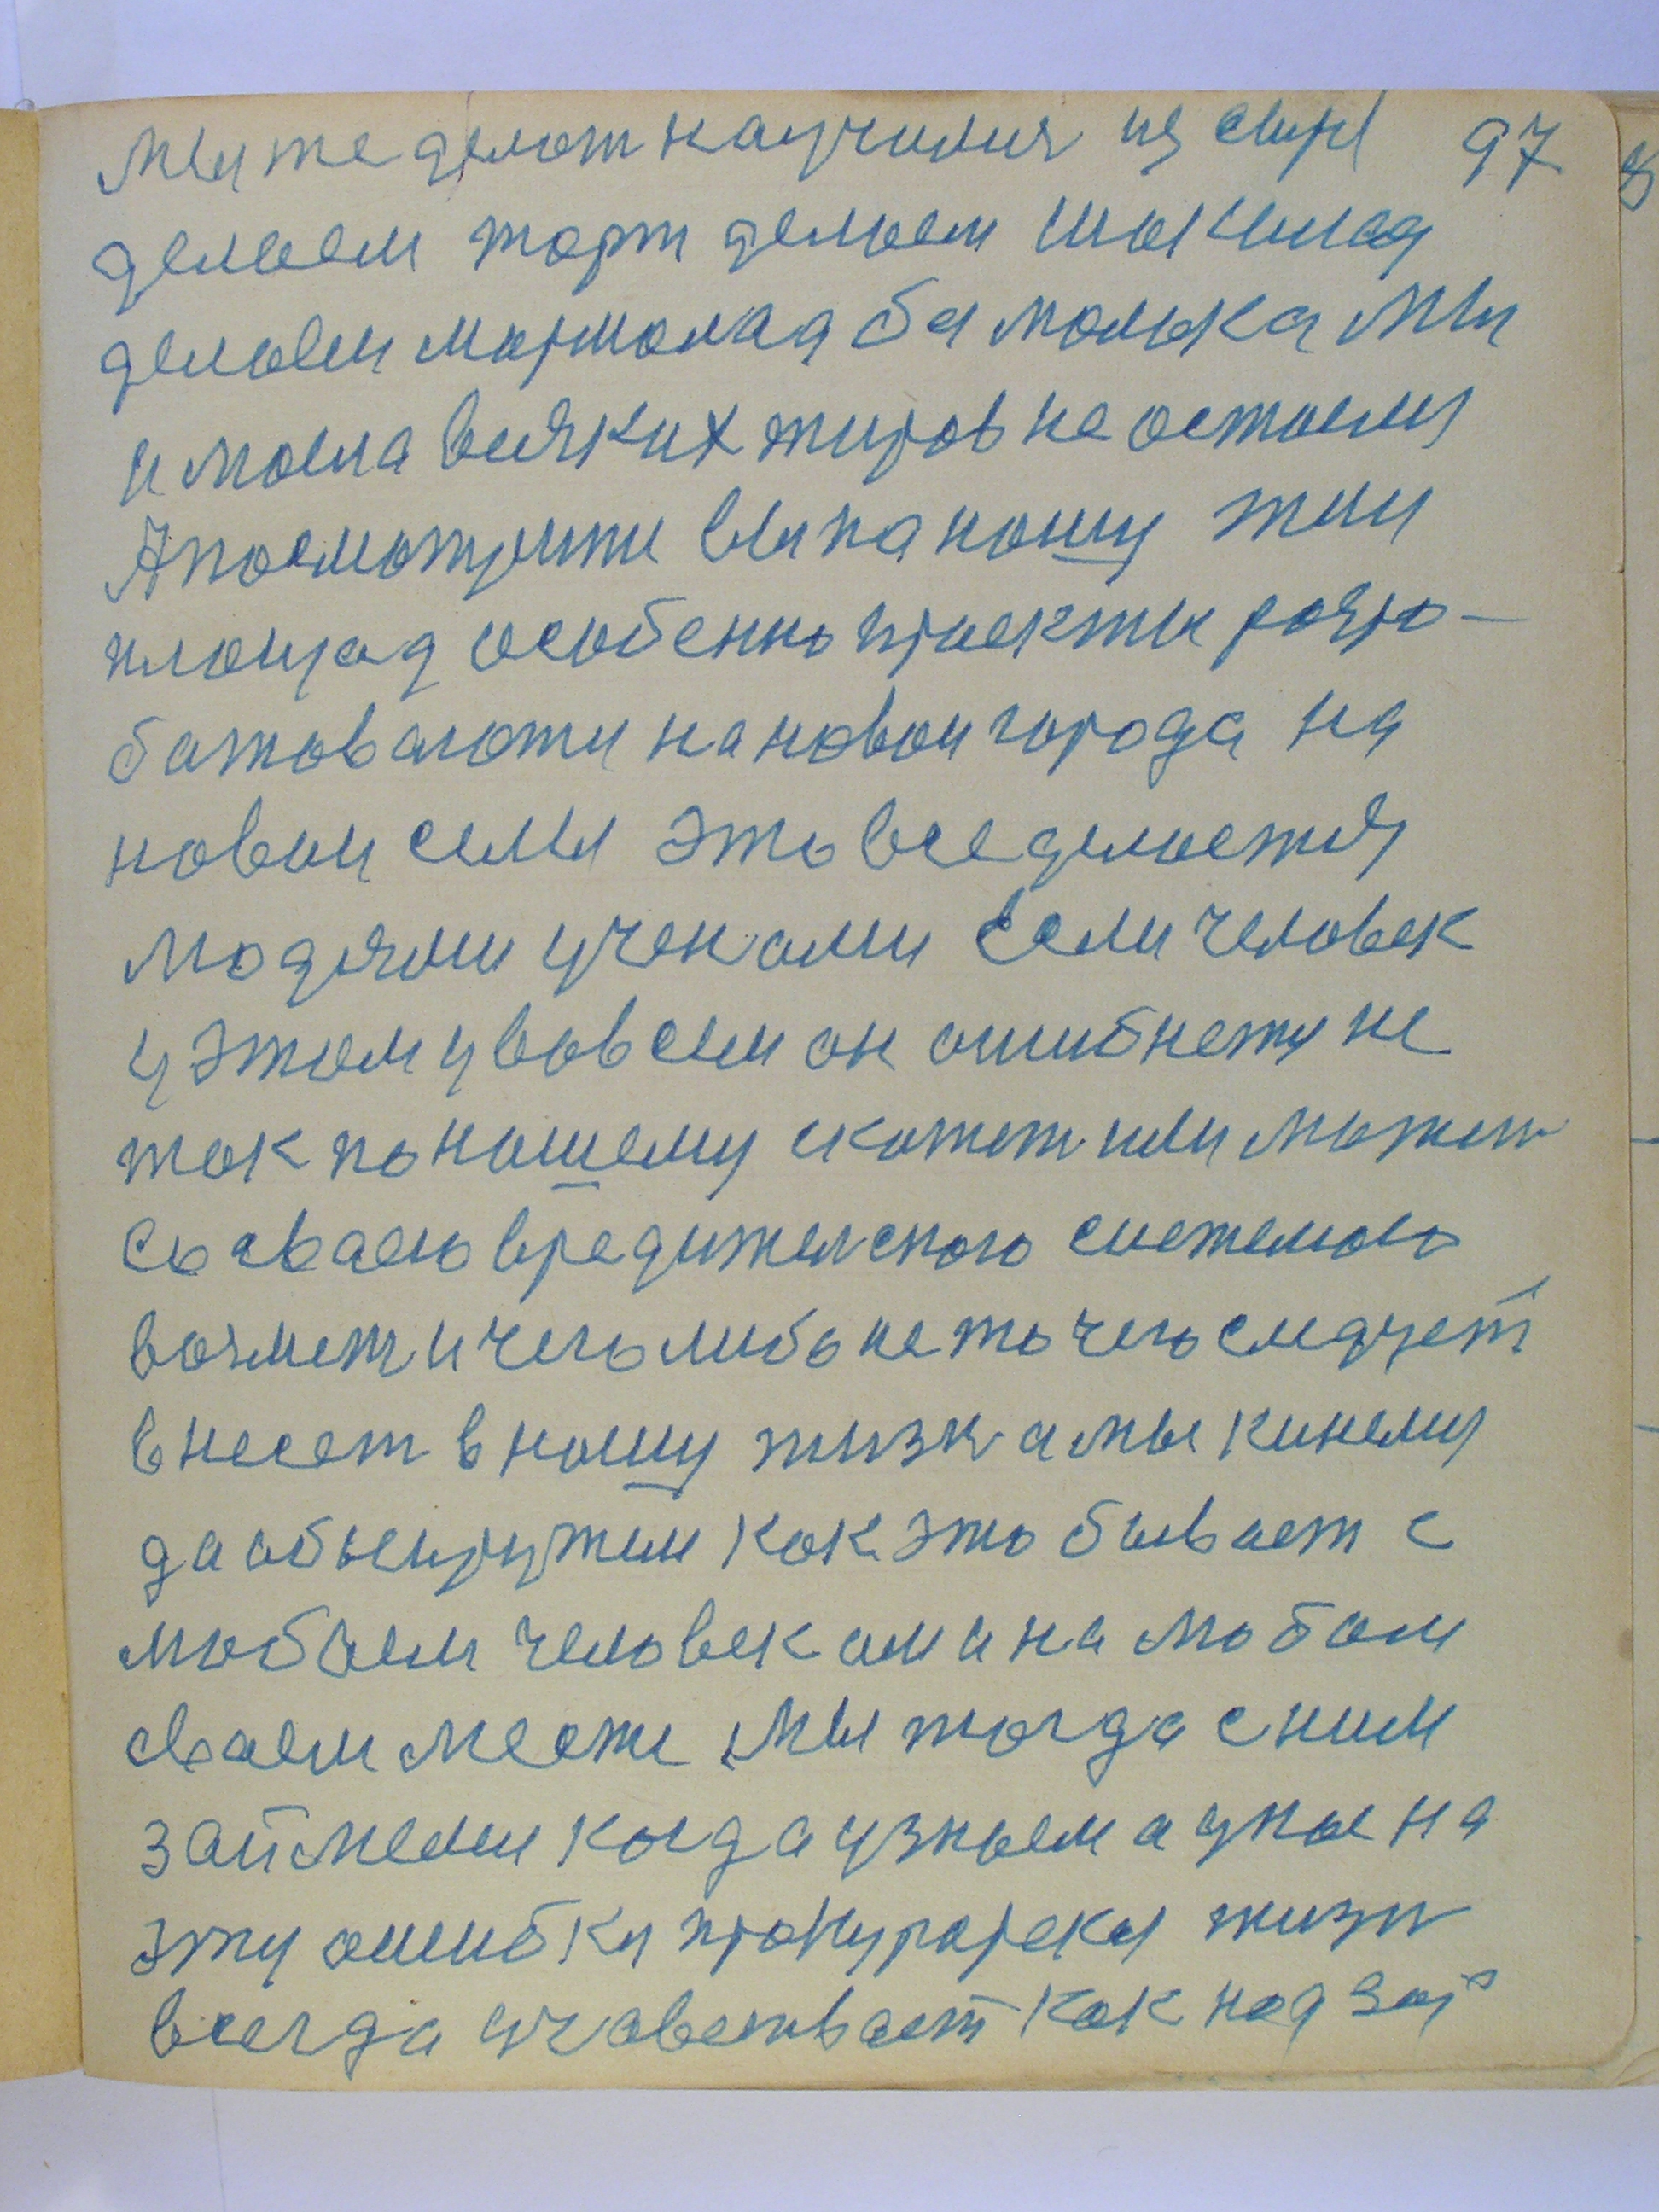 Мы же делот научилися из сыр 97
делаем торт делаем шыкилад
делаем мормолад без молока мы
и масла всяких жиров не остаемся
А посмотрите вы на ношу жил
площад особенно проекты розро-
батоваюти на новои города на
новаи селы это все делоется
людями учекоми Если человек
у этом у вовсем он ошибнется не
ток по ношему скотет или можит
со своею вредителскою системою
возмет и чего либо не то чего следует
внесет в ношу жизн а мы кинемся
да обнружим как это бывает с
любоем человеком а на любом
своем месте мы тогда с ним
займемси когда узноем а у нос на
эту ошибку прокурорска жизн
всегда учавствует как надзор